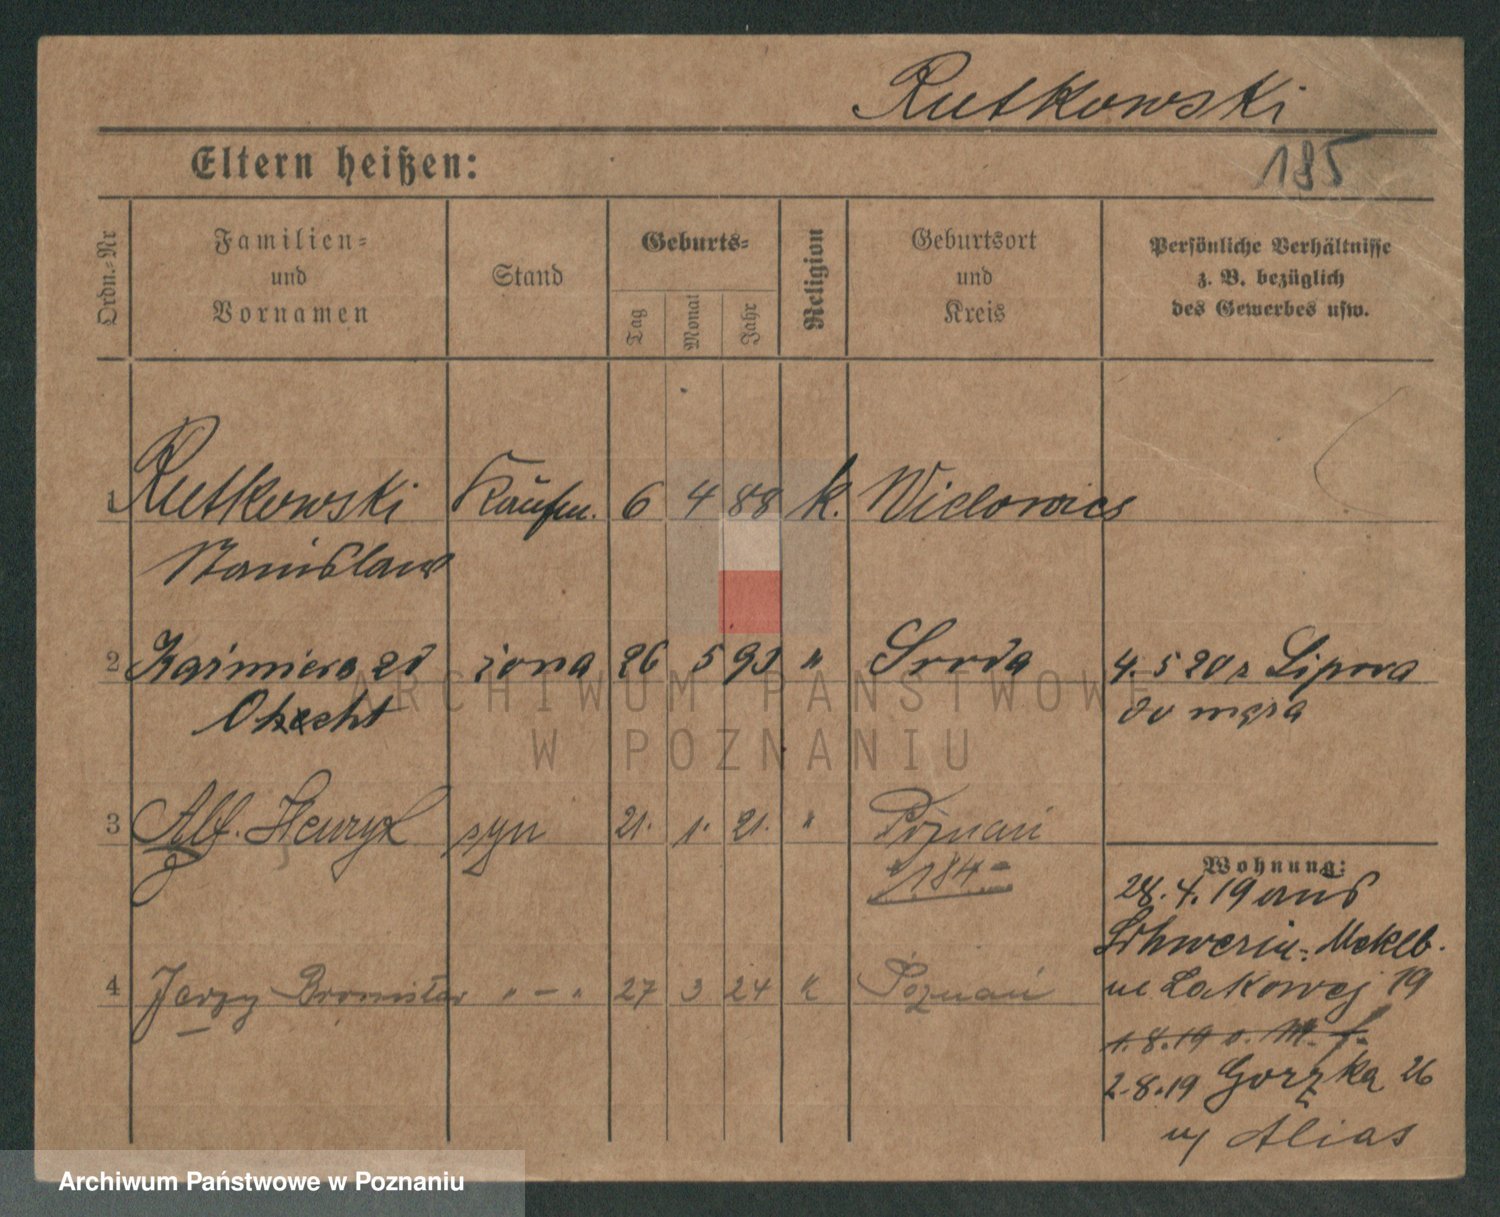 Rutkowski
Eltern heißen:
185
Ordn.-Nr
Familien-
und
Vornamen
Stand
Geburts-
Tag
Monat
Jahr
Religion
Geburtsort
und
Kreis
Persönliche Verhältnisse
z. B. bezüglich
des Gewerbes usw.
1 Rutkowski Kaufm. 6 4 88 k. Wielowies
Stanislaw
2 Kazimiera zd żona 26 5 93 " Sroda 4. 5 20 z Lipowa
Okecht do męża
3 Alf. Henryk syn 21. 1. 21. " Poznań
184
Wohnung:
28. 4. 19 aus
Schwerin-Meklb.
ul Lakowej 19
4 Jerzy Bronisław " — " 27 3 24 " Poznań
1. 8. 19 v. M. f.
2. 8. 19 Gorzka 26
Alias
ARCHIWUM PAŃSTWOWE
W POZNANIU
Archiwum Państwowe w Poznaniu